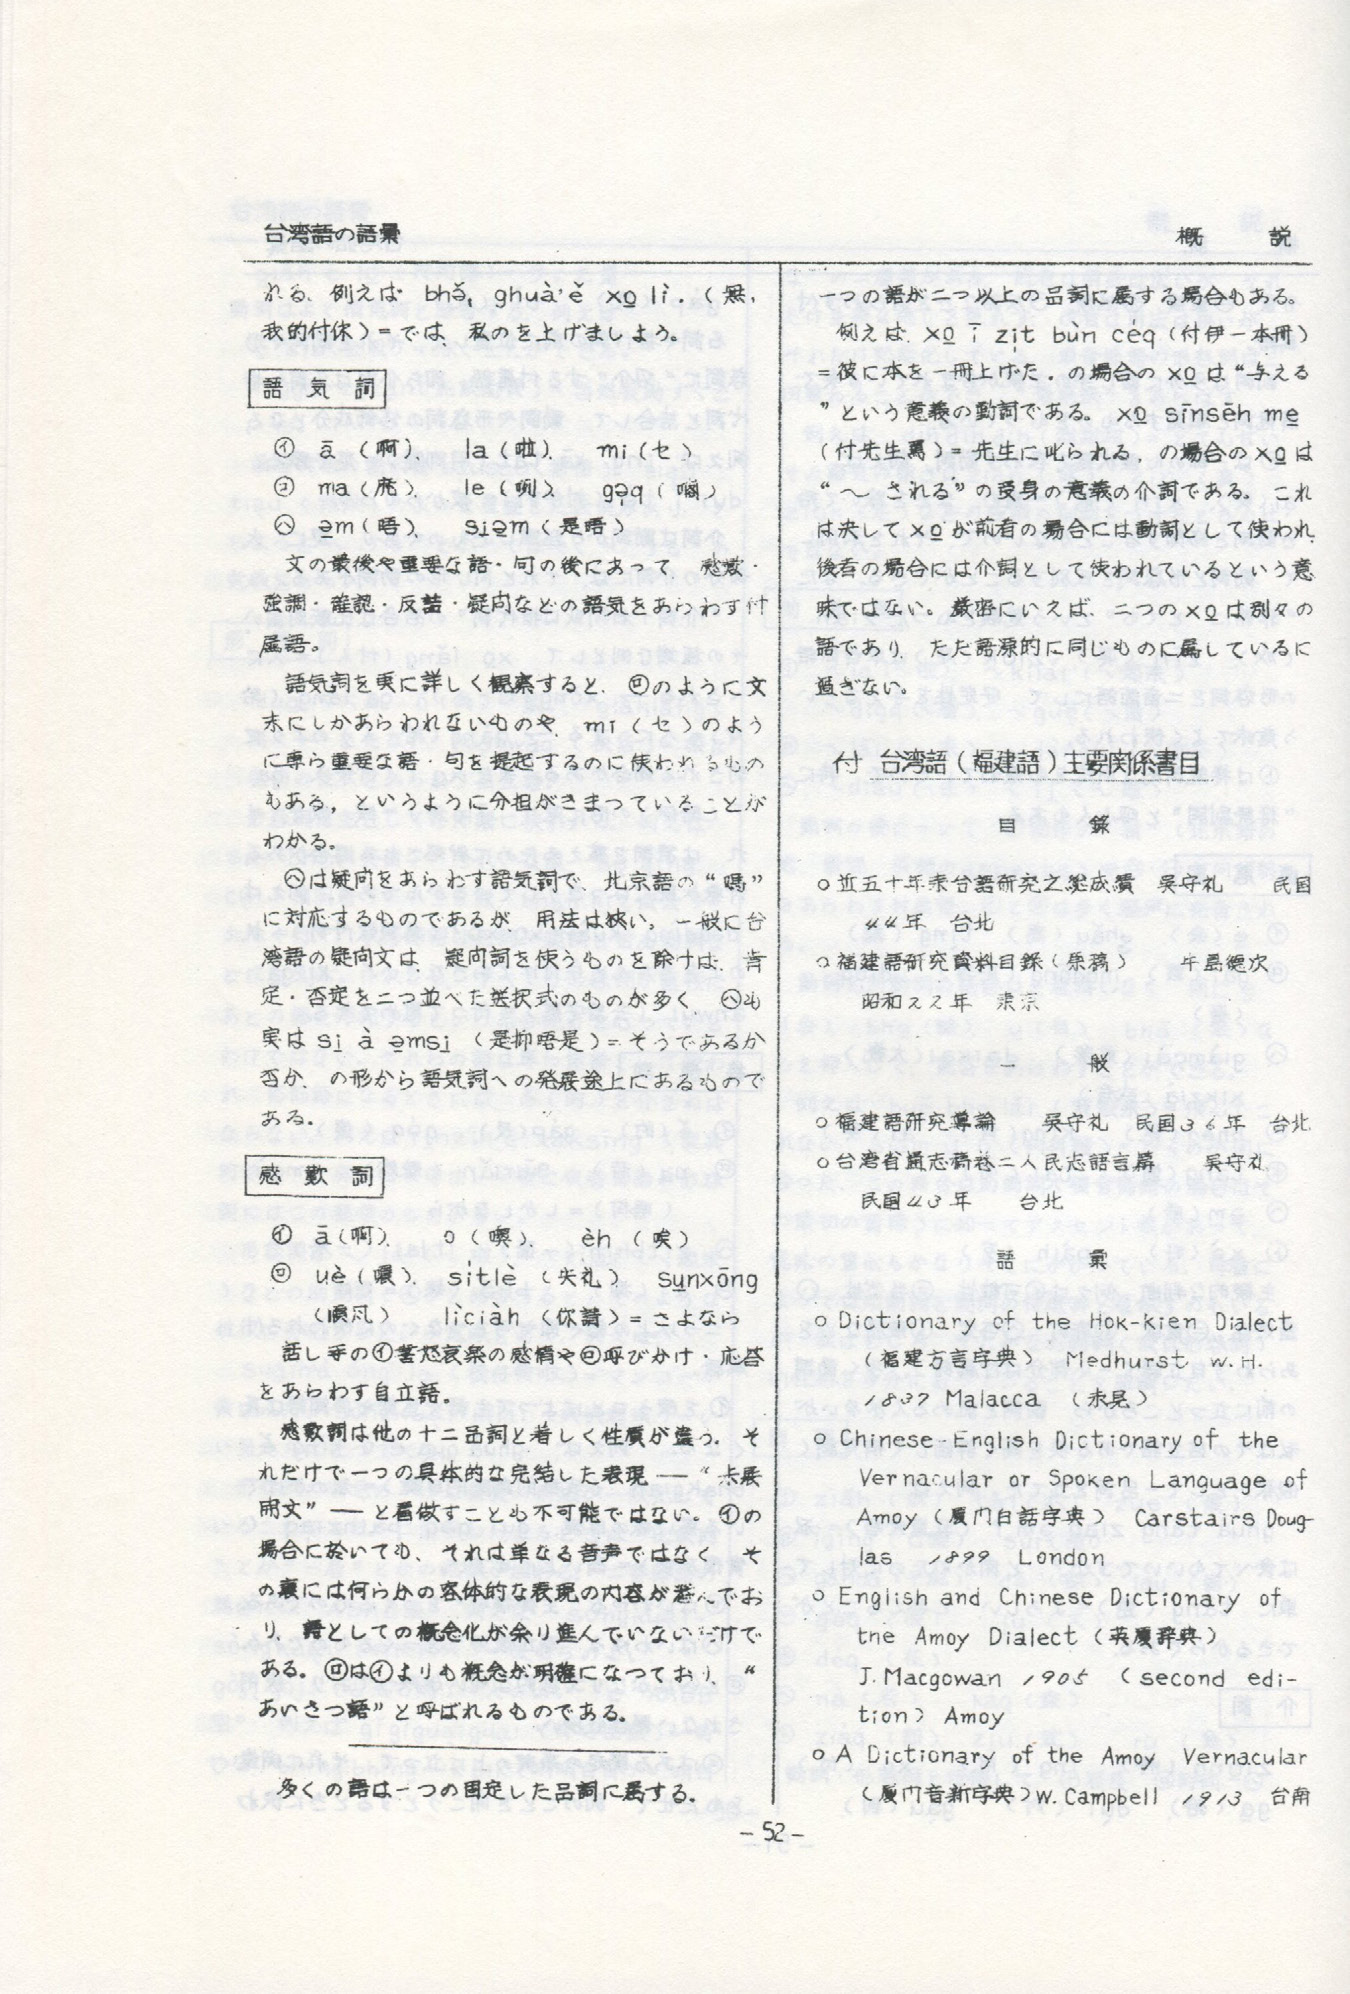 台湾語の語彙
概　説
れる、例えば bhǒ, ghuà'ě xo̲ lì.（無,
我的付休）＝では、私のを上げましよう。
語 気 詞
㋑ ā（啊）、 la（啦）、 mi（セ）
㋺ ma（麽）、 le（咧）、 gə̣q（嘓）
㋩ ə̲m（唔）、 siə̲m（是唔）
文の最後や重要な語・句の後にあって、感歎・
強調・確認・反詰・疑问などの語気をあらわす付
属語。
語気詞を更に詳しく観察すると、㋺のように文
末にしかあらわれないものや、mi（セ）のよう
に専ら重要な語・句を提起するのに使われるもの
もある，というように分担がきまっていることが
わかる。
㋩は疑问をあらわす語気詞で、北京語の“嗎”
に対応するものであるが、用法は狭い。一般に台
湾語の疑问文は、疑问詞を使うものを除けば、肯
定・否定を二つ並べた選択式のものが多く、㋩も
実は si̲ à ə̲msi̲（是抑唔是）＝そうであるか
否か、の形から語気詞への発展途上にあるもので
ある。
感 歎 詞
㋑ ā（啊）、 o（噢）、 èh（唉）
㋺ uè（喂）、 sı̍tlè（失礼） su̲nxōng
（順风） lìciàh（你請）＝さよなら
話し手の㋑喜怒哀楽の感情や㋺呼びかけ・応答
をあらわす自立語。
感歎詞は他の十二品詞と著しく性質が違う。そ
れだけで一つの具体的な完結した表現 ——“未展
開文”—— と看做すことも不可能ではない。㋑の
場合に於いても、それは単なる音声ではなく、そ
の裏には何らかの客体的な表現の内容が潜んでお
り、語としての概念化が余り進んでいないだけで
ある。㋺は㋑よりも概念が明確になつており、“
あいさつ語”と呼ばれるものである。
多くの語は一つの固定した品詞に属する。
一つの語が二つ以上の品詞に属する場合もある。
例えば、xo̲ ī zı̣t bùn céq（付伊一本冊）
＝彼に本を一冊上げた。の場合の xo̲ は“与える
”という意義の動詞である。xo̲ sīnsēh me̲
（付先生罵）＝先生に叱られる，の場合のxo̲は
“～ される”の受身の意義の介詞である。これ
は决してxo̲が前者の場合には動詞として使われ
後者の場合には介詞として使われているという意
味ではない。厳密にいえば、二つのxo̲は別々の
語であり、ただ語源的に同じものに属しているに
過ぎない。
付　台湾語（福建語）主要関係書目
目　録
○近五十年来台語研究之総成績　吳守礼　民国
44年　台北
○福建語研究資料目録（原稿）　牛島徳次
昭和22年　東京
一　般
○福建語研究導論　吳守礼　民国36年　台北
○台湾省通志稿巻二人民志語言篇　吳守礼
民国43年　台北
語　彙
○ Dictionary of the Hok-kien Dialect
（福建方言字典） Medhurst W.H.
1837 Malacca （未見）
○ Chinese-English Dictionary of the
Vernacular or Spoken Language of
Amoy（厦门白話字典） Carstairs Doug-
las 1899 London
○ English and Chinese Dictionary of
the Amoy Dialect（英厦辞典）
J.Macgowan 1905 （second edi-
tion） Amoy
○ A Dictionary of the Amoy Vernacular
（厦门音新字典）W. Campbell 1913 台南
－52－